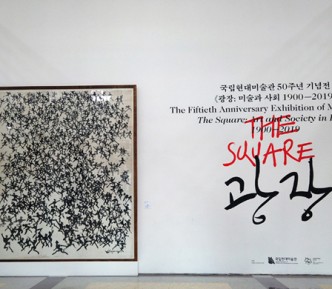 국립현대미술관 50주년 기념전
《광장: 미술과 사회 1900—2019
The Fiftieth Anniversary Exhibition of M
The Square: Art and Society in
1900—2019
THE
SQUARE
광장
국립현대미술관